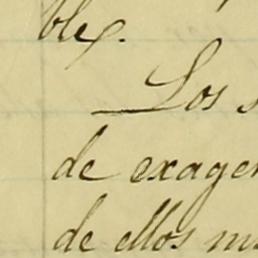 bles.
Los s
de exager
de ellos m